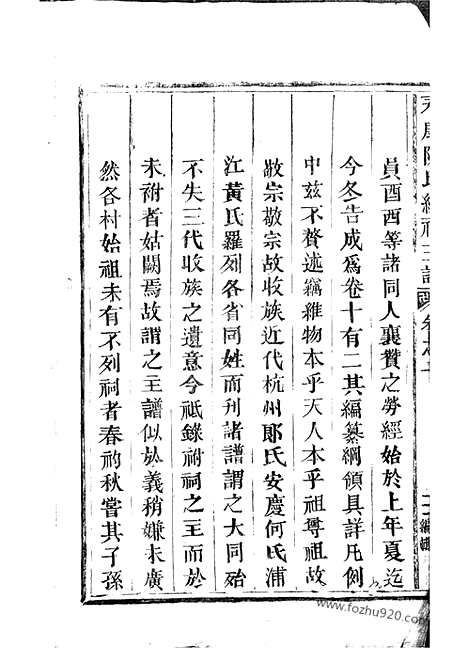 員酉西等諸同人襄贊之勞經始於上年夏迄
今冬告成爲卷十有二其編纂綱領具詳凡例
中兹不贅述竊維物本乎天人本乎祖尊祖故
敬宗敬宗故收族近代杭州郎氏安慶何氏浦
江黃氏羅列各省同姓而刋諸譜謂之大同始
不失三代收族之遺意今祗錄祔祠之主而於
未祔者姑闕焉故謂之主譜似於義稍嫌未廣
然各村始祖未有不列祠者春礿秋嘗其子孫
www.fozhu920.com